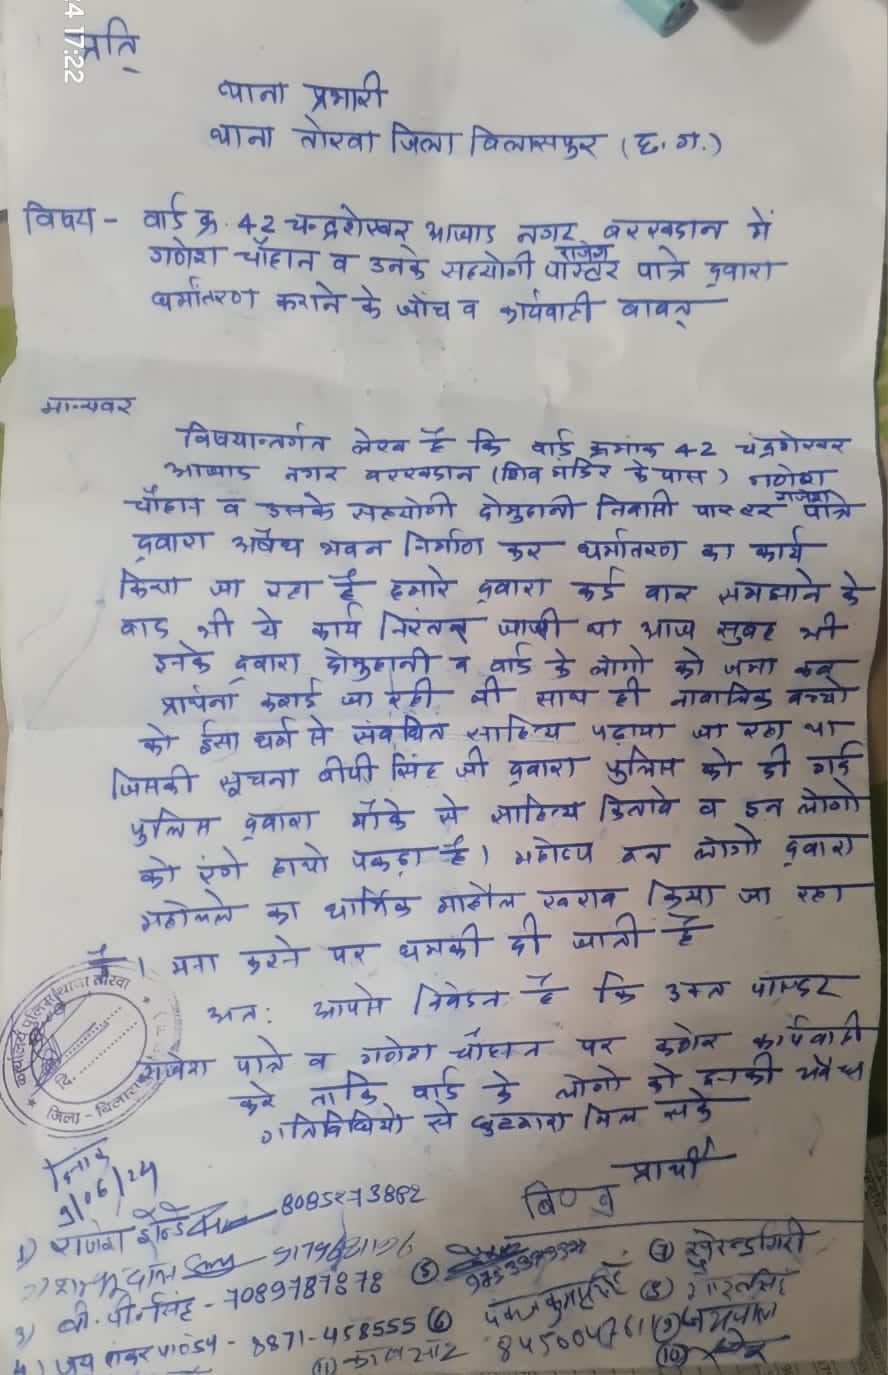 4 17:22
प्रति,
थाना प्रभारी
थाना तोरवा जिला बिलासपुर (छ.ग.)
विषय - वार्ड क्र. 42 चन्द्रशेखर आजाद नगर बरखदान में
गणेश चौहान व उनके सहयोगी पास्टर राजेश पात्रे द्वारा
धर्मांतरण कराने के जाँच व कार्यवाही बाबत्
मान्यवर
विषयान्तर्गत लेख है कि वार्ड क्रमांक 42 चंद्रशेखर
आजाद नगर बरखदान (शिव मंदिर के पास) गणेश
चौहान व उसके सहयोगी दोमुहानी निवासी पास्टर राजेश पात्रे
द्वारा अवैध भवन निर्माण कर धर्मातरण का कार्य
किया जा रहा है हमारे द्वारा कई बार समझाने के
बाद भी ये कार्य निरंतर जारी था आज सुबह भी
इनके द्वारा दोमुहानी व वार्ड के लोगो को जमा कर
प्रार्थना कराई जा रही थी साथ ही नाबालिक बच्चो
को ईसा धर्म से संबंधित साहित्य पढ़ाया जा रहा था
जिसकी सूचना बीपी सिंह जी द्वारा पुलिस को दी गई
पुलिस द्वारा मौके से साहित्य किताबे व इन लोगो
को रंगे हाथो पकड़ा है। महोदय इन लोगो द्वारा
महोल्ले का धार्मिक माहौल खराब किया जा रहा
है। मना करने पर धमकी दी जाती है
अतः आपसे निवेदन है कि उक्त पास्टर
राजेश पात्रे व गणेश चौहान पर कठोर कार्यवाही
करे ताकि वार्ड के लोगो को इनकी अवैध
गतिविधियो से छुटकारा मिल सके
कार्यालय पुलिस थाना तोरवा
दि.
जिला - बिलासपुर
दिनांक
9/06/24
प्रार्थी
1) राजेश 8085273882
3) बी.पी. सिंह - 7089787878
4) जय शंकर पाण्डे - 8871-458555
(5)
(6) पंकज कुमार सिंह
(7)
(8)
(9) जयपाल
(10)
(11)